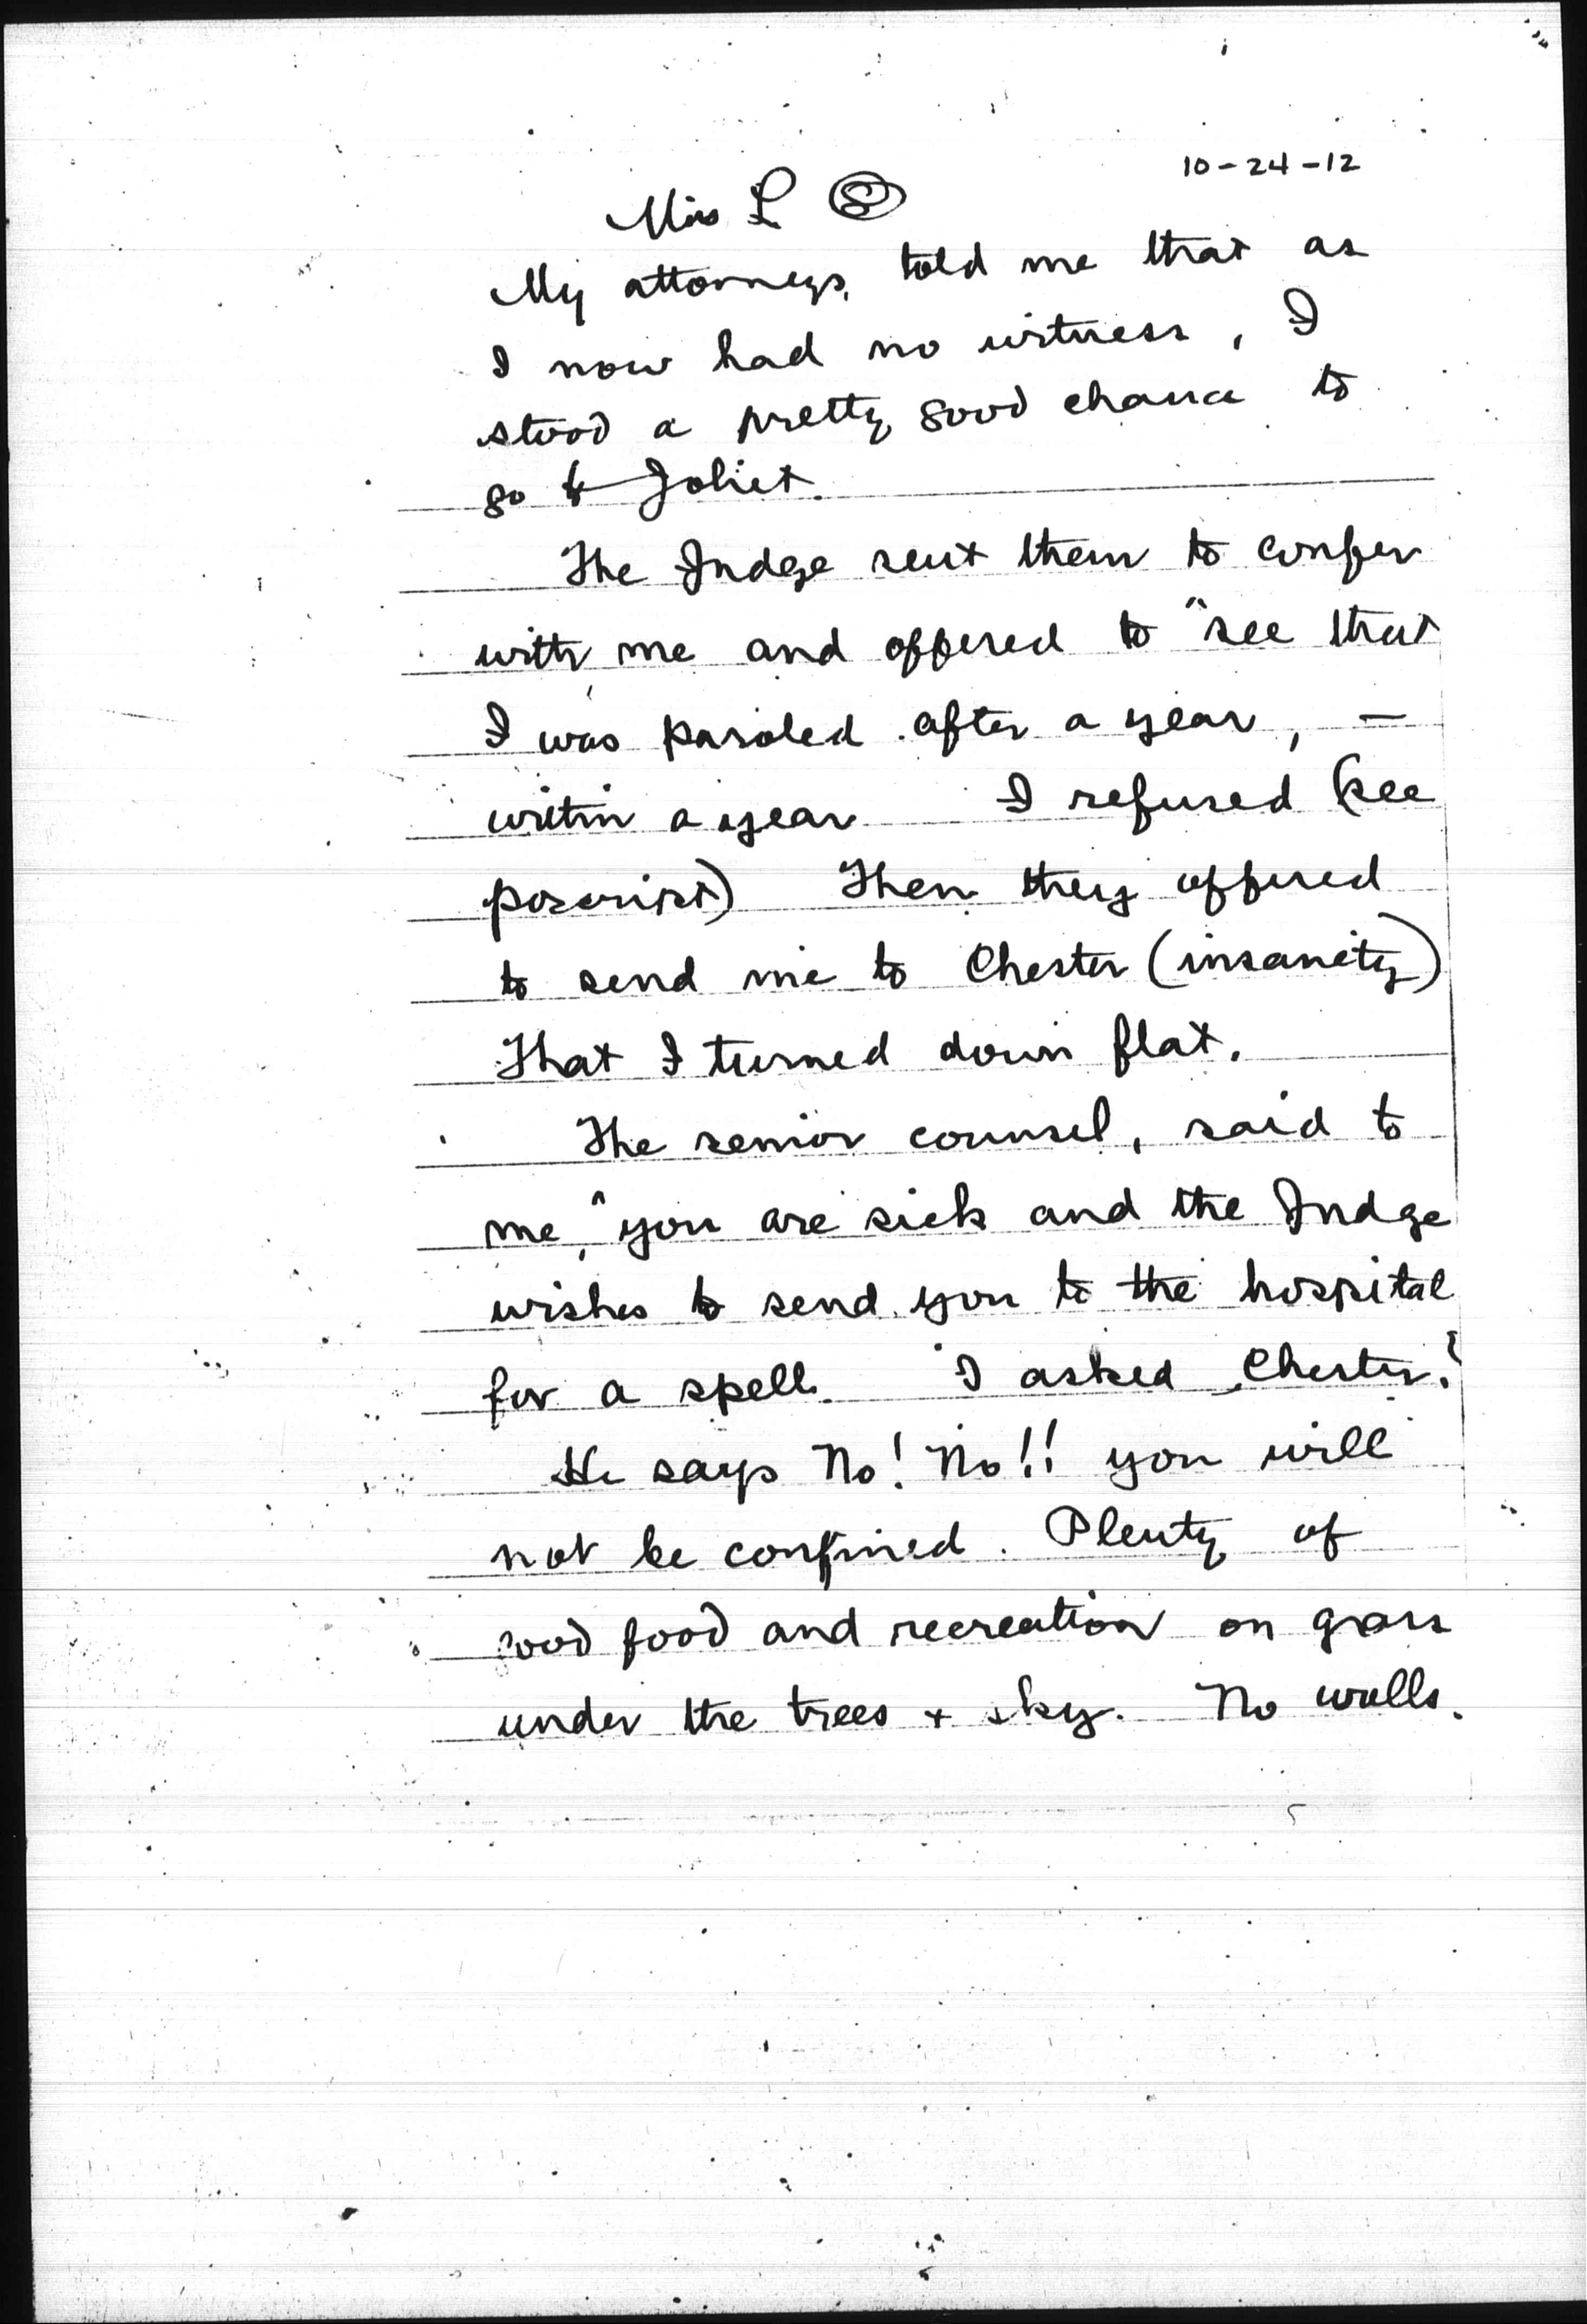 10-24-12
Miss L
My attorneys, told me that as
I now had no witness, I
stood a pretty good chance to
go to Joliet.
The Judge sent them to confer
with me and offered to "see that
I was paroled after a year, —
within a year I refused (see
poscript) Then they offered
to send me to Chester (insanity)
That I turned down flat.
The senior counsel, said to
me, "you are sick and the Judge
wishes to send you to the hospital
for a spell. I asked, Chester?
He says No! No!! you will
not be confined. Plenty of
good food and recreation on grass
under the trees + sky. No walls.